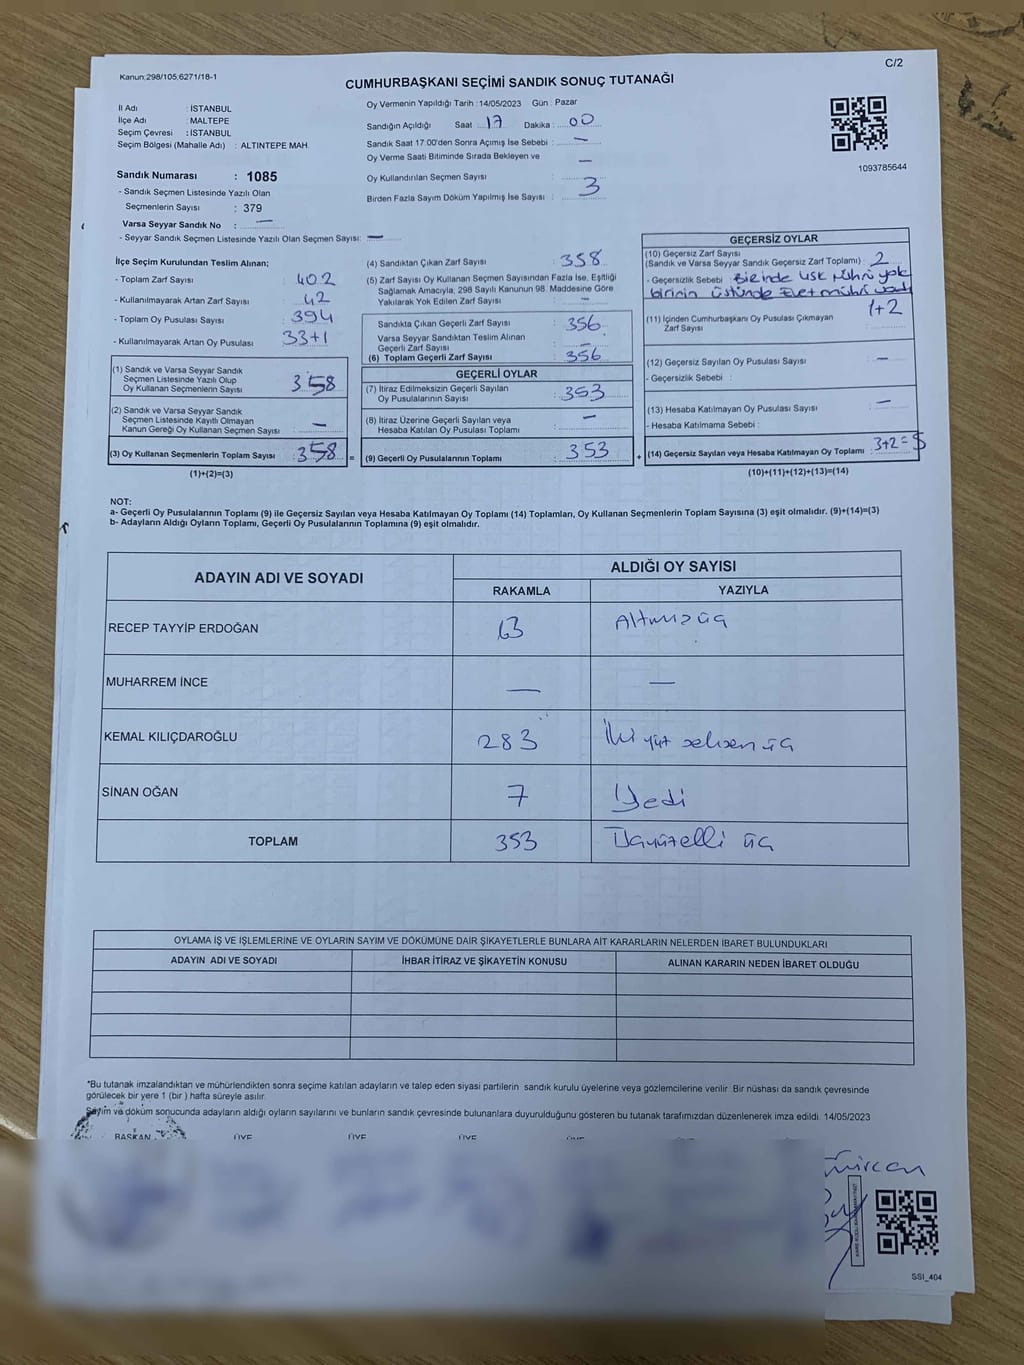 Kanun:298/105;6271/18-1
C/2
CUMHURBAŞKANI SEÇİMİ SANDIK SONUÇ TUTANAĞI
İl Adı : İSTANBUL
İlçe Adı : MALTEPE
Seçim Çevresi : İSTANBUL
Seçim Bölgesi (Mahalle Adı) : ALTINTEPE MAH.
Sandık Numarası : 1085
- Sandık Seçmen Listesinde Yazılı Olan
Seçmenlerin Sayısı : 379
Varsa Seyyar Sandık No : —
- Seyyar Sandık Seçmen Listesinde Yazılı Olan Seçmen Sayısı: —
Oy Vermenin Yapıldığı Tarih : 14/05/2023 Gün : Pazar
Sandığın Açıldığı Saat : 17 Dakika : 00
Sandık Saat 17:00'den Sonra Açımış İse Sebebi : —
Oy Verme Saati Bitiminde Sırada Bekleyen ve
Oy Kullandırılan Seçmen Sayısı : —
Birden Fazla Sayım Döküm Yapılmış İse Sayısı : 3
1093785644
İlçe Seçim Kurulundan Teslim Alınan;
- Toplam Zarf Sayısı : 402
- Kullanılmayarak Artan Zarf Sayısı : 42
- Toplam Oy Pusulası Sayısı : 394
- Kullanılmayarak Artan Oy Pusulası : 33+1
(1) Sandık ve Varsa Seyyar Sandık
Seçmen Listesinde Yazılı Olup
Oy Kullanan Seçmenlerin Sayısı : 358
(2) Sandık ve Varsa Seyyar Sandık
Seçmen Listesinde Kayıtlı Olmayan
Kanun Gereği Oy Kullanan Seçmen Sayısı : —
(3) Oy Kullanan Seçmenlerin Toplam Sayısı : 358 =
(1)+(2)=(3)
(4) Sandıktan Çıkan Zarf Sayısı : 358
(5) Zarf Sayısı Oy Kullanan Seçmen Sayısından Fazla İse, Eşitliği
Sağlamak Amacıyla, 298 Sayılı Kanunun 98. Maddesine Göre
Yakılarak Yok Edilen Zarf Sayısı : —
Sandıkta Çıkan Geçerli Zarf Sayısı : 356
Varsa Seyyar Sandıktan Teslim Alınan
Geçerli Zarf Sayısı : —
(6) Toplam Geçerli Zarf Sayısı : 356
GEÇERLİ OYLAR
(7) İtiraz Edilmeksizin Geçerli Sayılan
Oy Pusulalarının Sayısı : 353
(8) İtiraz Üzerine Geçerli Sayılan veya
Hesaba Katılan Oy Pusulası Toplamı : —
(9) Geçerli Oy Pusulalarının Toplamı : 353 +
GEÇERSİZ OYLAR
(10) Geçersiz Zarf Sayısı
(Sandık ve Varsa Seyyar Sandık Geçersiz Zarf Toplamı) : 2
- Geçersizlik Sebebi : Birinde YSK Mührü yok
birinin üstünde Evet mührü vardı
(11) İçinden Cumhurbaşkanı Oy Pusulası Çıkmayan
Zarf Sayısı : 1+2
(12) Geçersiz Sayılan Oy Pusulası Sayısı : —
- Geçersizlik Sebebi :
(13) Hesaba Katılmayan Oy Pusulası Sayısı : —
- Hesaba Katılmama Sebebi :
(14) Geçersiz Sayılan veya Hesaba Katılmayan Oy Toplamı : 3+2=5
(10)+(11)+(12)+(13)=(14)
NOT:
a- Geçerli Oy Pusulalarının Toplamı (9) ile Geçersiz Sayılan veya Hesaba Katılmayan Oy Toplamı (14) Toplamları, Oy Kullanan Seçmenlerin Toplam Sayısına (3) eşit olmalıdır. (9)+(14)=(3)
b- Adayların Aldığı Oyların Toplamı, Geçerli Oy Pusulalarının Toplamına (9) eşit olmalıdır.
ADAYIN ADI VE SOYADI
ALDIĞI OY SAYISI
RAKAMLA YAZIYLA
RECEP TAYYİP ERDOĞAN 63 Altmışüç
MUHARREM İNCE — —
KEMAL KILIÇDAROĞLU 283 İki yüz seksen üç
SİNAN OĞAN 7 Yedi
TOPLAM 353 Üçyüzelli üç
OYLAMA İŞ VE İŞLEMLERİNE VE OYLARIN SAYIM VE DÖKÜMÜNE DAİR ŞİKAYETLERLE BUNLARA AİT KARARLARIN NELERDEN İBARET BULUNDUKLARI
ADAYIN ADI VE SOYADI İHBAR İTİRAZ VE ŞİKAYETİN KONUSU ALINAN KARARIN NEDEN İBARET OLDUĞU
*Bu tutanak imzalandıktan ve mühürlendikten sonra seçime katılan adayların ve talep eden siyasi partilerin sandık kurulu üyelerine veya gözlemcilerine verilir. Bir nüshası da sandık çevresinde
görülecek bir yere 1 (bir) hafta süreyle asılır.
Sayım ve döküm sonucunda adayların aldığı oyların sayılarını ve bunların sandık çevresinde bulunanlara duyurulduğunu gösteren bu tutanak tarafımızdan düzenlenerek imza edildi. 14/05/2023
BAŞKAN ÜYE ÜYE ÜYE ÜYE
SSI_404